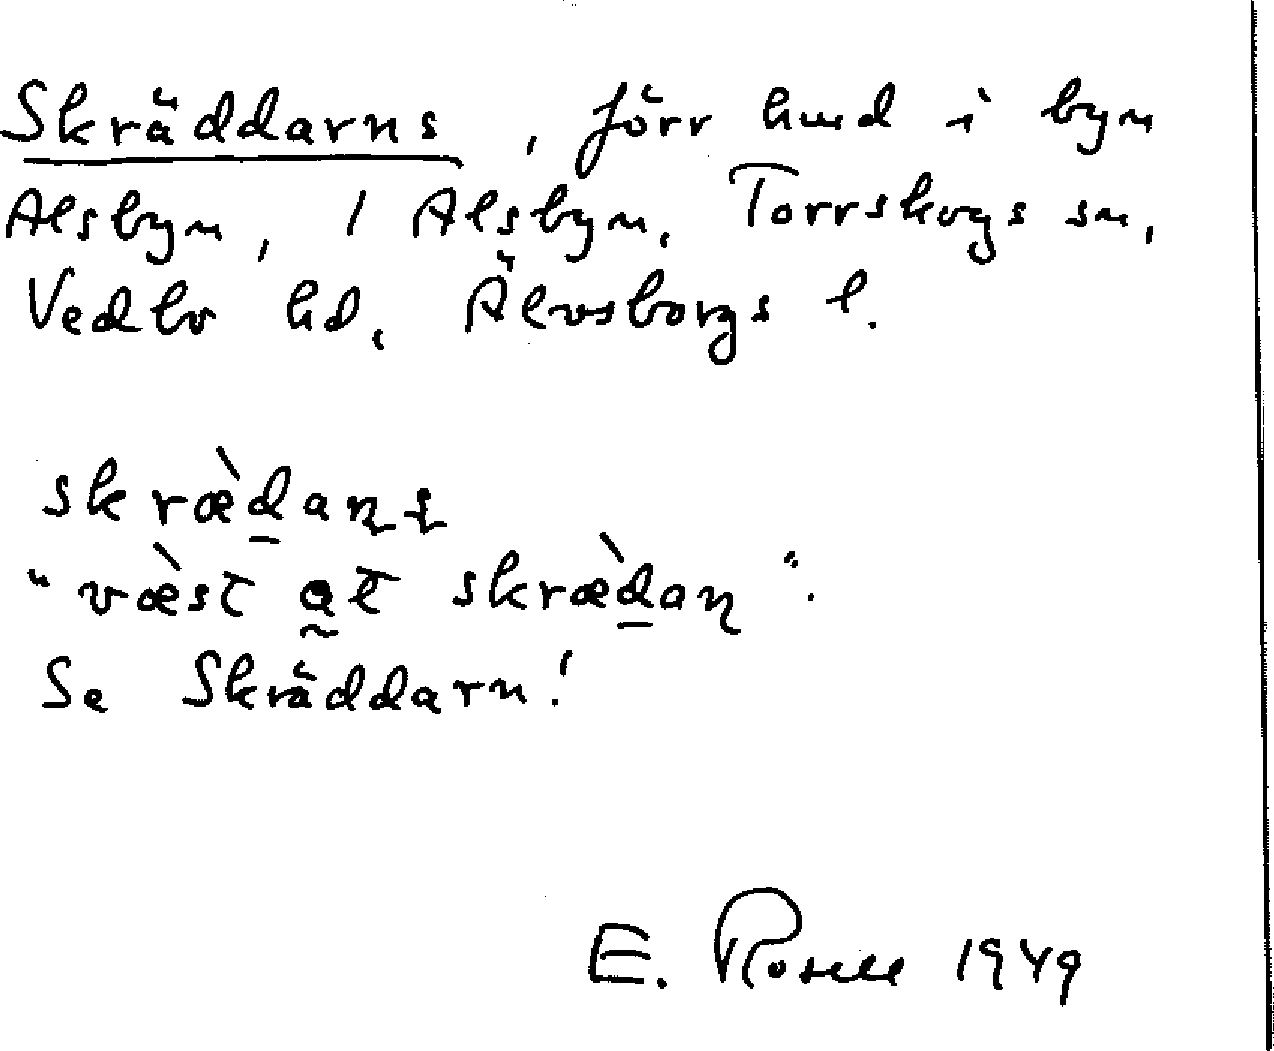 Skräddarns, förr hmd i byn
Alsbyn, 1 Alsbyn, Torrskogs sn,
Vedbo hd, Älvsborgs l.
skræ̀d̲aɳʂ
"væ̀st a̰t skræ̀d̲aɳ".
Se Skräddarn!
E. Rosell 1949